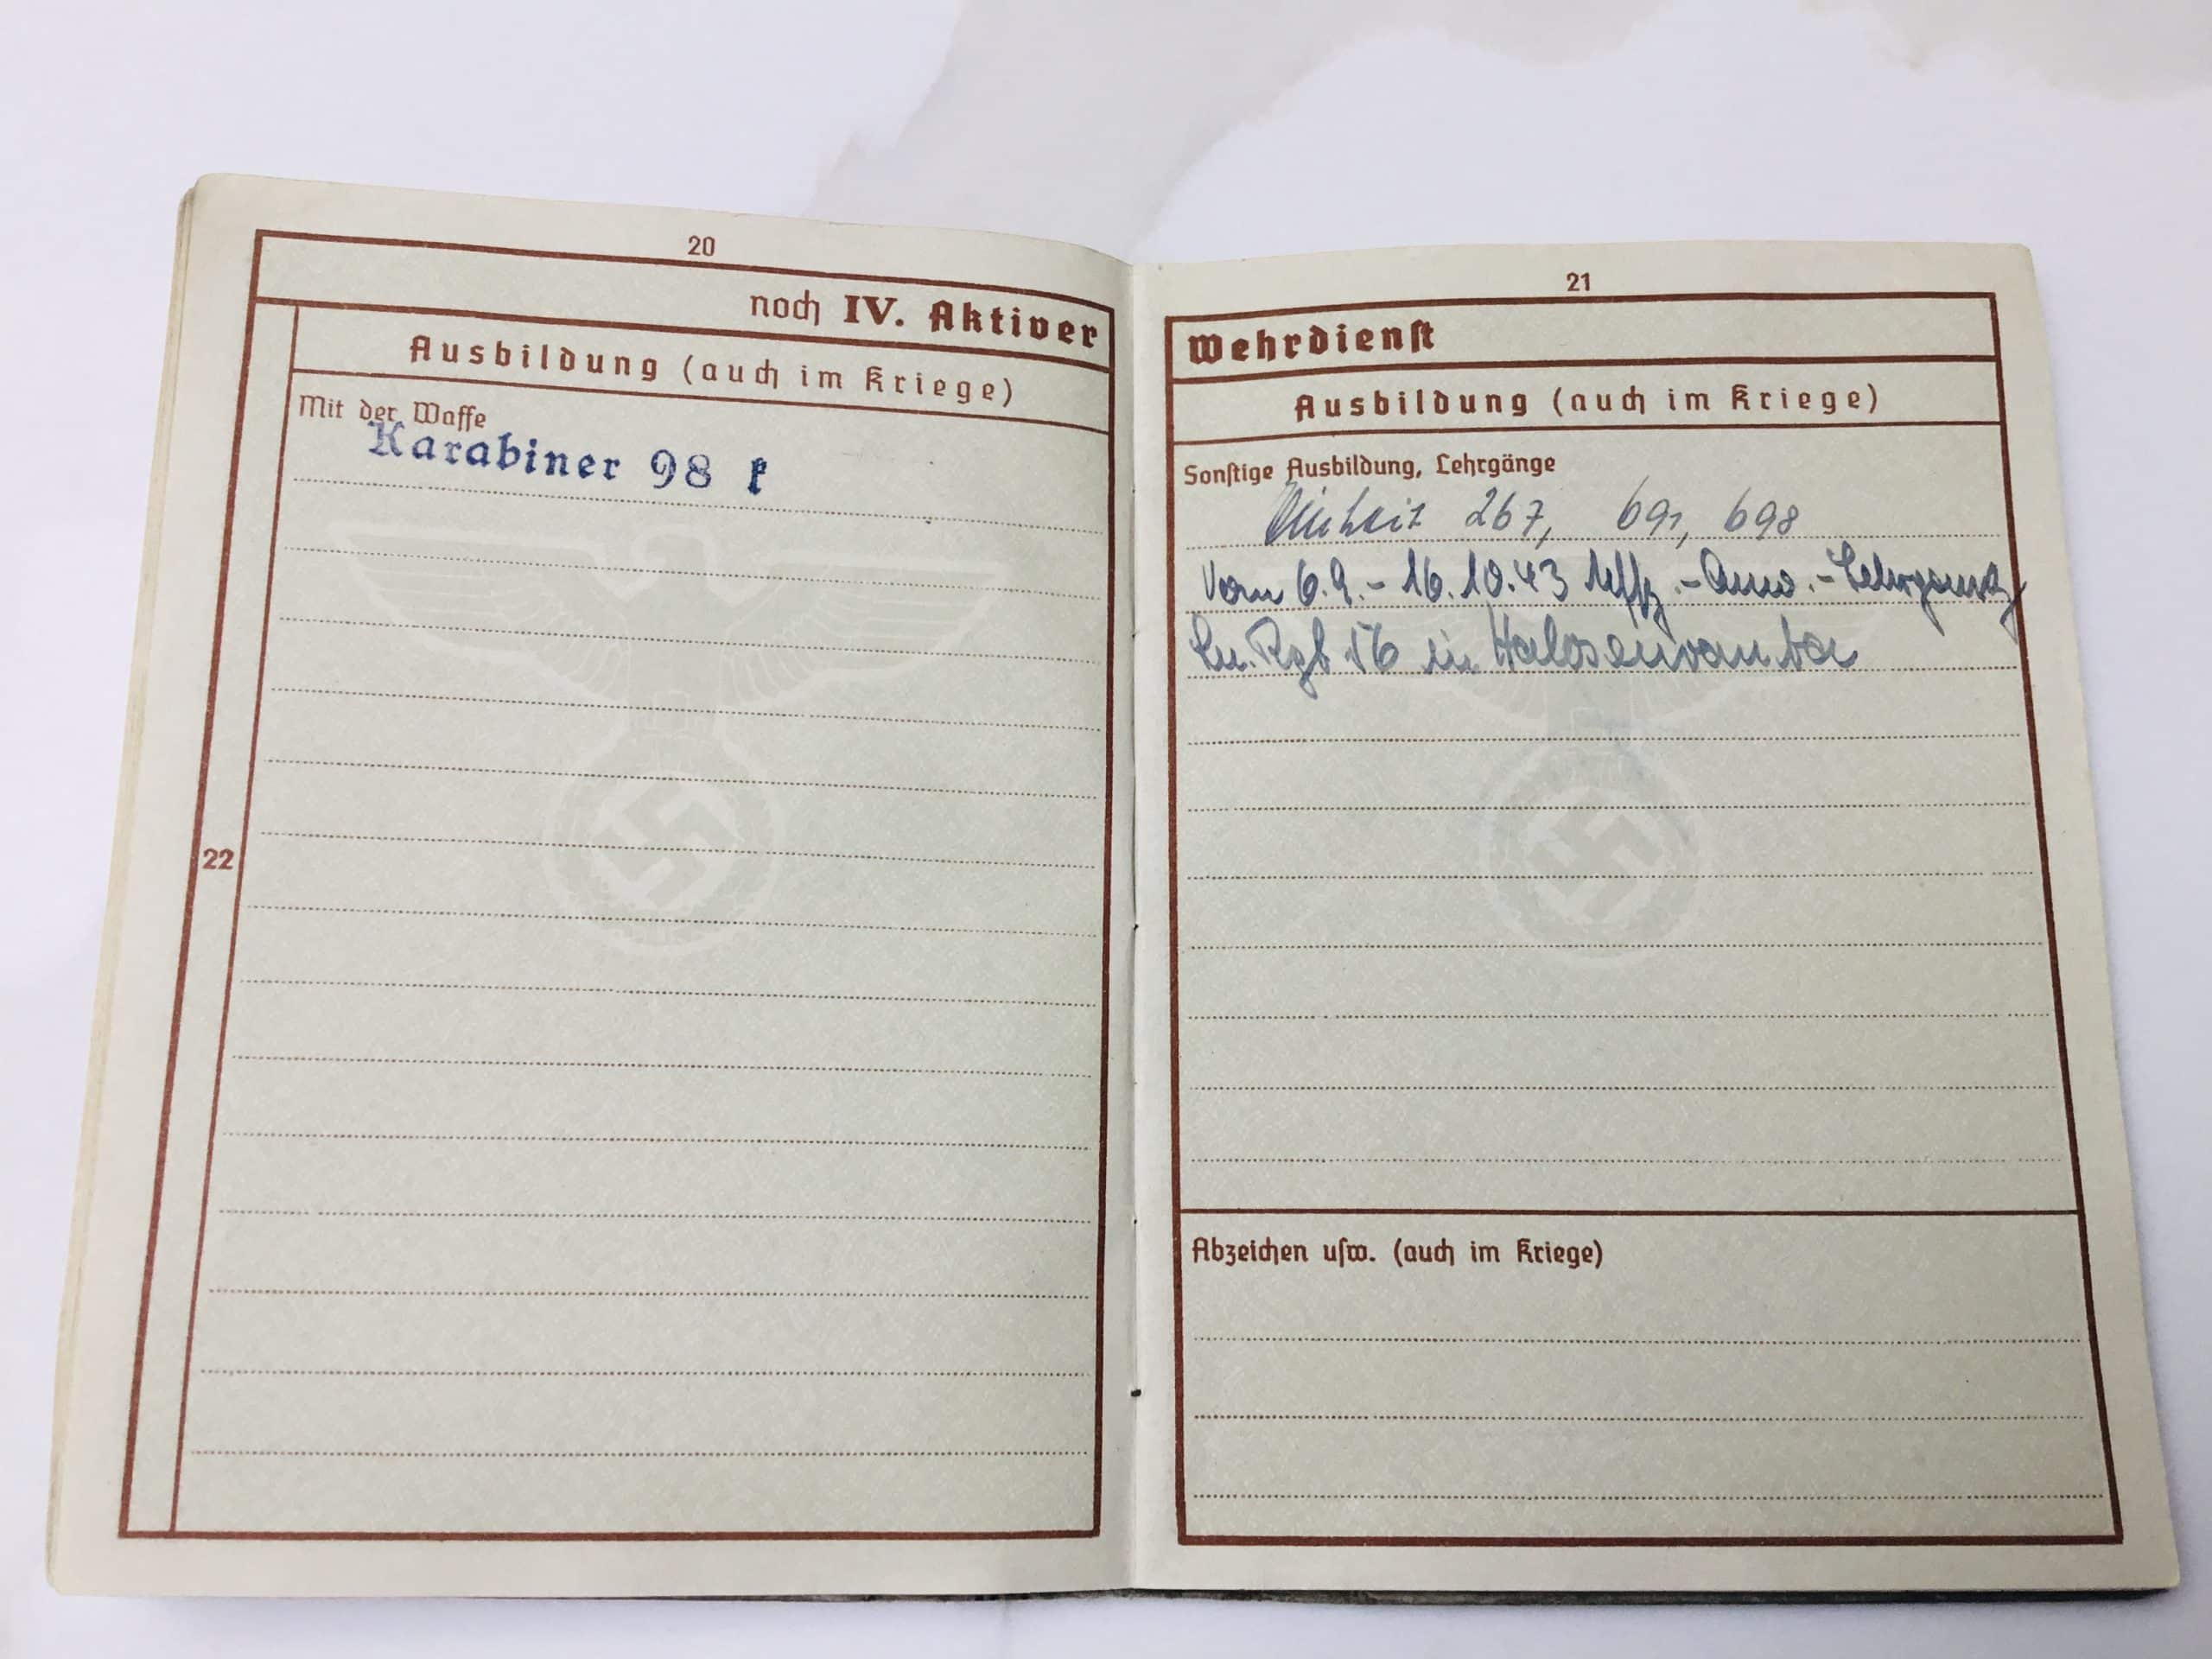 20
noch IV. Aktiver
Ausbildung (auch im Kriege)
Mit der Waffe
Karabiner 98 k
22
21
Wehrdienst
Ausbildung (auch im Kriege)
Sonstige Ausbildung, Lehrgänge
Einheit 267, 691, 698
Vom 6.9.-16.10.43 Uffz.-Anw.-Lehrgang
Ln. Rgt 16 in
Abzeichen usw. (auch im Kriege)